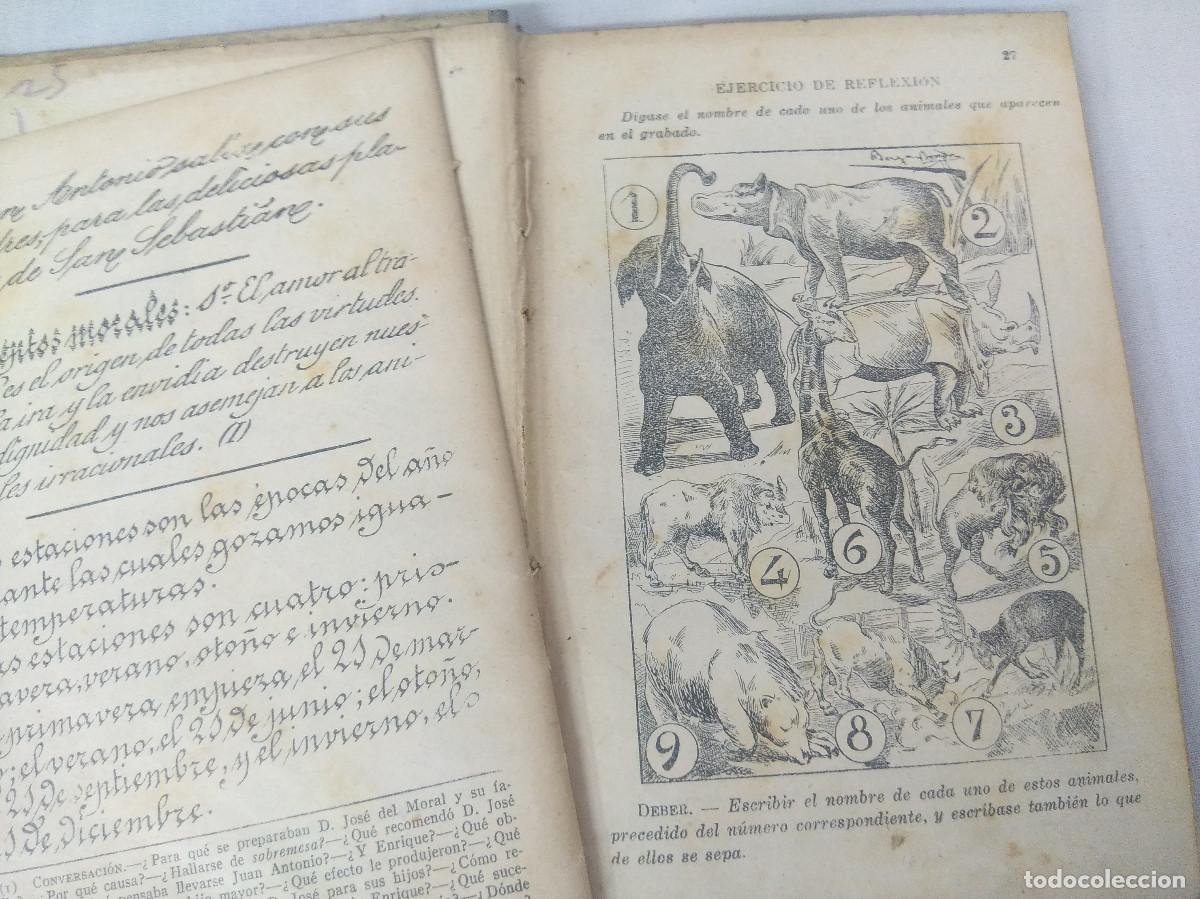 25
Antonio salise con sus
dres, para las deliciosas pla-
de San Sebastián.
entos morales: 1º El amor al tra-
es el origen de todas las virtudes.
la ira y la envidia destruyen nues-
dignidad y nos asemejan a los ani-
les irracionales. (I)
estaciones son las épocas del año
ante las cuales gozamos igua-
temperaturas.
as estaciones son cuatro: pri-
avera, verano, otoño e invierno.
primavera empieza el 21 de mar-
o; el verano, el 21 de junio; el otoño,
21 de septiembre, y el invierno, el
1 de diciembre.
(1) CONVERSACIÓN.—¿Para qué se preparaban D. José del Moral y su fa-
¿Por qué causa?—¿Hallarse de sobremesa?—¿Qué recomendó D. José
pensaba llevarse Juan Antonio?—¿Y Enrique?—¿Qué ob-
hijo mayor?—¿Qué efecto le produjeron?—¿Qué
José para sus hijos?—¿Cómo re-
Enrique?—¿Qué suce-
¿Dónde
27
EJERCICIO DE REFLEXIÓN
Dígase el nombre de cado uno de los animales que aparecen
en el grabado.
1
2
3
4
5
6
7
8
9
DEBER. — Escribir el nombre de cada uno de estos animales,
precedido del número correspondiente, y escríbase también lo que
de ellos se sepa.
todocoleccion